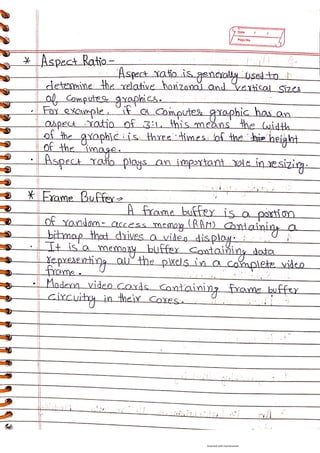 Date / /
Page No.
* Aspect Ratio -
Aspect ratio is generally used to
determine the relative horizonal and vertical sizes
of computer graphics.
· For example, if a computer graphic has an
aspect ratio of 3:1, this means the width
of the graphic is three times of the height
of the image.
· Aspect ratio plays an important role in resizing.
* Frame Buffer →
A frame buffer is a portion
of random-access memory (RAM) containing a
bitmap that drives a video display.
· It is a memory buffer containing data
representing all the pixels in a complete video
frame.
· Modern video cards containing frame buffer
circuitry in their cores.
Scanned with CamScanner